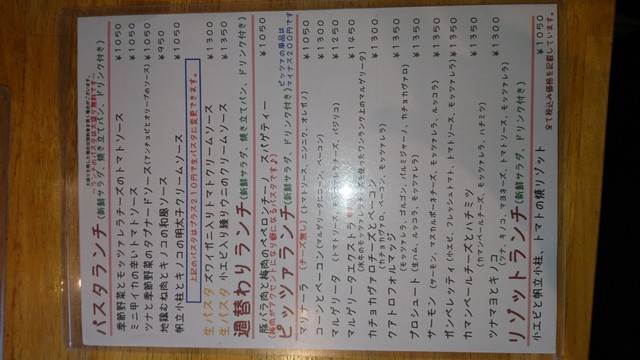 パスタランチ(新鮮サラダ、焼き立てパン、ドリンク付き)
～ランチのパスタは大盛り無料です～
季節野菜とモッツァレラチーズのトマトソース ￥1050
ミニ甲イカの辛いトマトソース ￥1050
ツナと季節野菜のタプナードソース(アンチョビとオリーブのソース) ￥1050
地鶏むね肉とキノコの和風ソース ￥950
帆立小柱とキノコの明太子クリームソース ￥1050
上記のパスタはプラス210円で生パスタに変更できます。
生パスタ ズワイガニ入りトマトクリームソース ￥1300
生パスタ 小エビ入り練りウニのクリームソース ￥1350
週替わりランチ(新鮮サラダ、焼き立てパン、ドリンク付き)
豚バラ肉と梅肉のペペロンチーノ スパゲティー ￥1050
(梅肉がアクセントになり癖になるパスタです♪)
ピッツァランチ(新鮮サラダ、ドリンク付き)
ピッツァの単品はマイナス200円です
マリナーラ (チーズ無し)(トマトソース、ニンニク、オレガノ) ￥1050
コーンとベーコン(マルゲリータにコーン、ベーコン) ￥1300
マルゲリータ (トマトソース、モッツァレラ、バジリコ) ￥1250
マルゲリータエクストラ(水牛のモッツァレラチーズを使ったワンランク上のマルゲリータ) ￥1450
カチョカヴァロチーズとベーコン ￥1300
(カチョカヴァロ、ベーコン、モッツァレラ)
クアトロフォルマッジ ￥1350
(モッツァレラ、ゴルゴン、パルミジャーノ、カチョカヴァロ)
プロシュート(生ハム、ルッコラ、モッツァレラ) ￥1350
サーモン(サーモン、マスカルポーネチーズ、モッツァレラ、ルッコラ) ￥1350
ガンベレッティ(小エビ、フレッシュトマト、トマトソース、モッツァレラ) ￥1350
カマンベールチーズとハチミツ ￥1350
(カマンベールチーズ、モッツァレラ、ハチミツ)
ツナマヨとキノコ ￥1300
(ツナ、キノコ、マヨネーズ、トマトソース、モッツァレラ)
リゾットランチ(新鮮サラダ、ドリンク付き)
小エビと帆立小柱、トマトの焼リゾット ￥1050
全て税込み価格を記載しています。